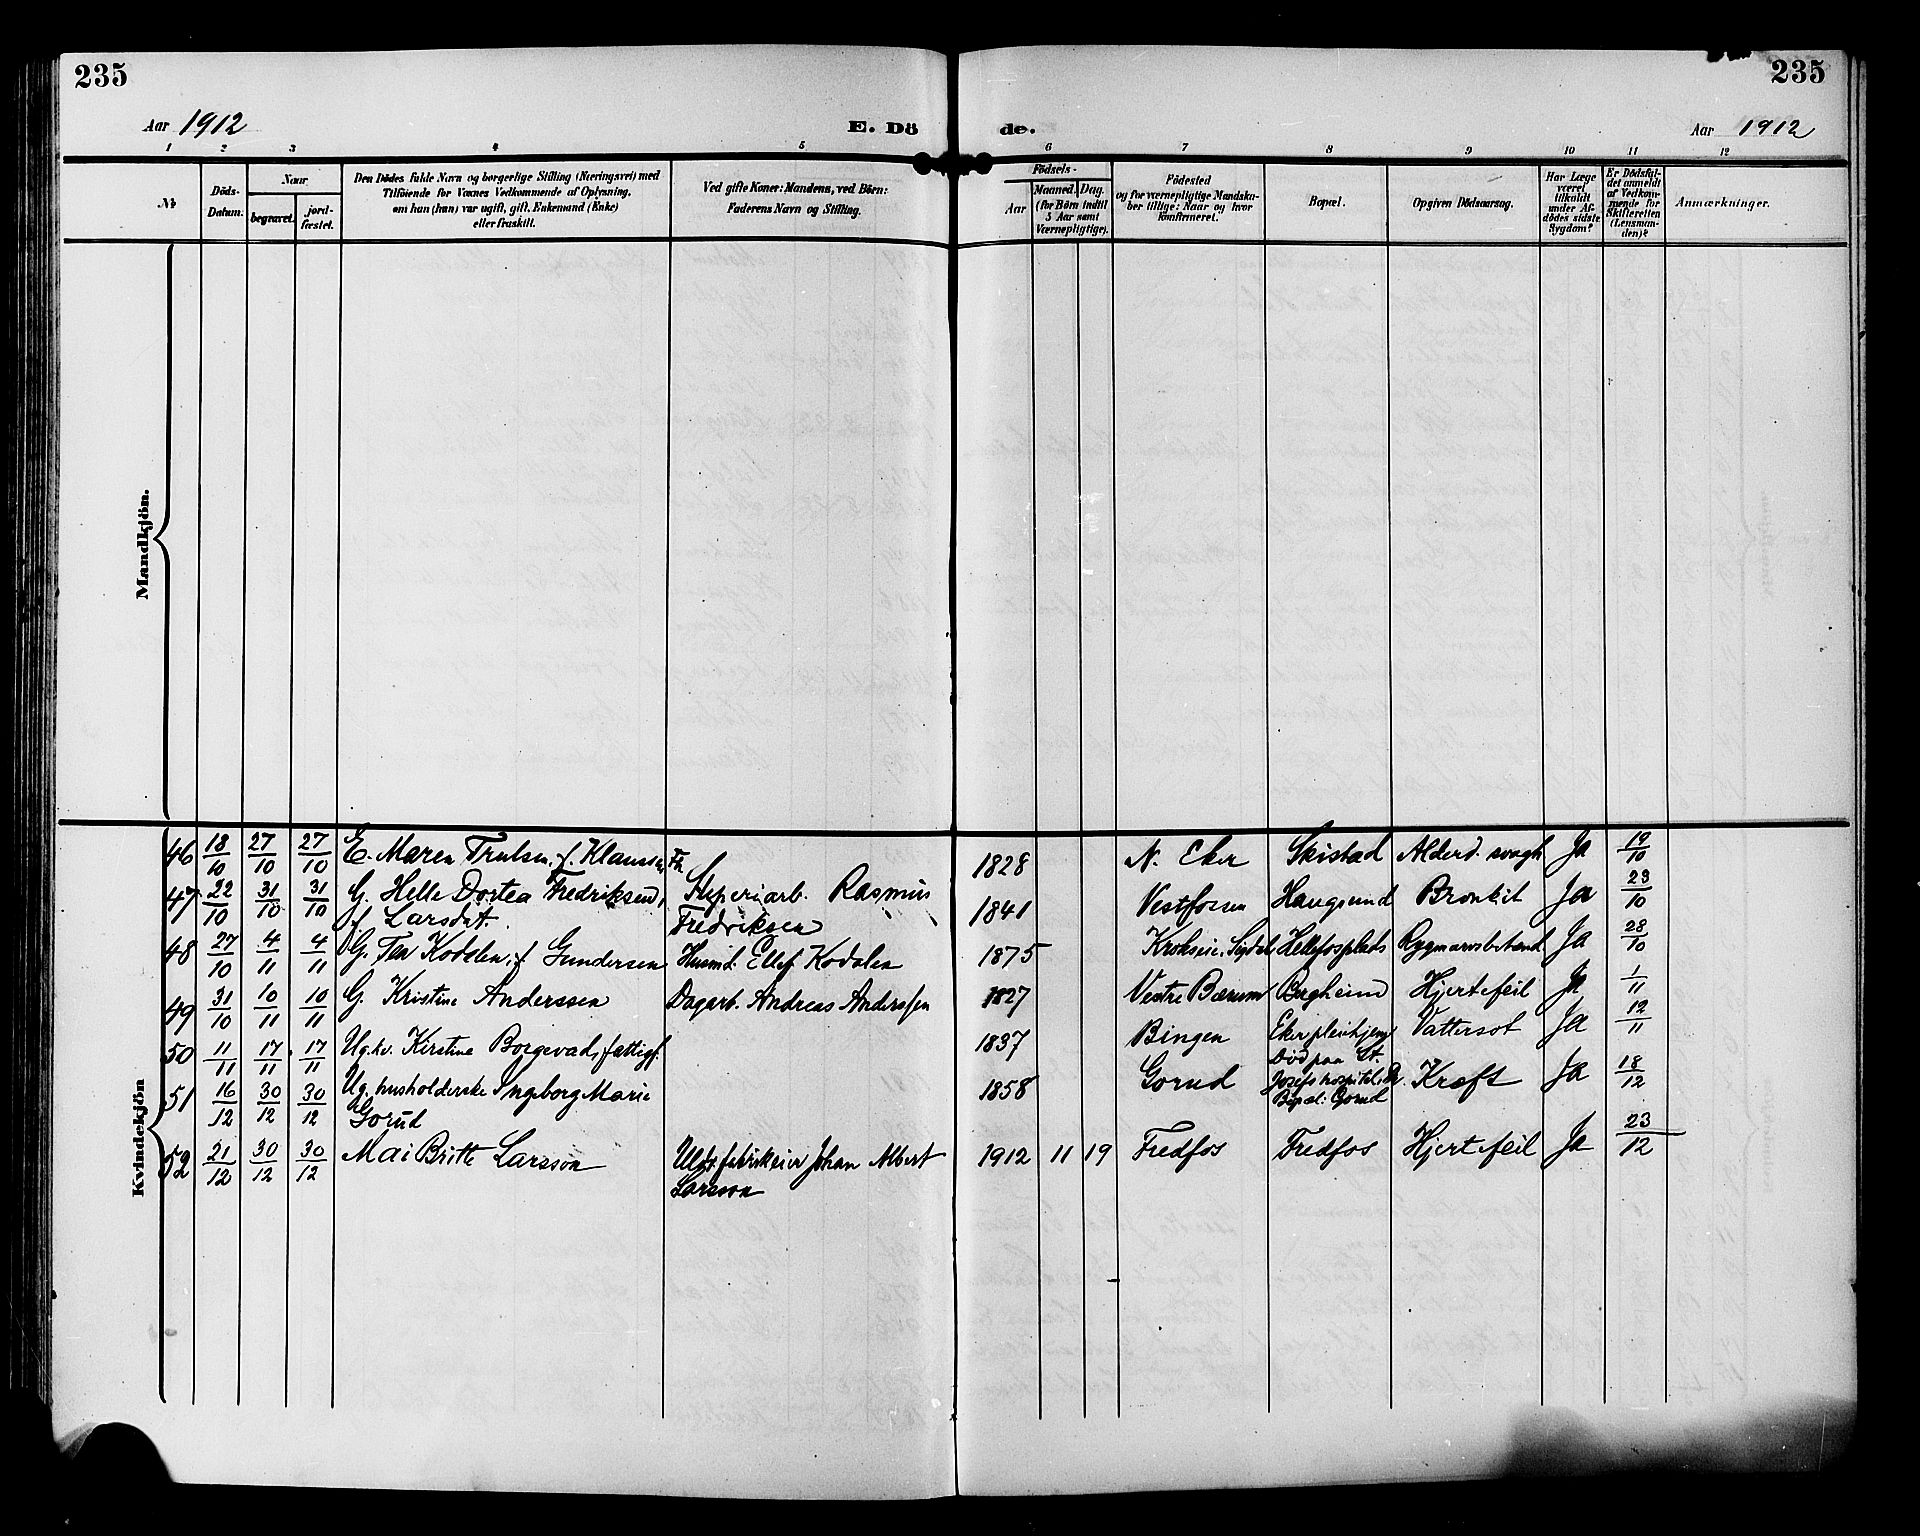 235
235
Aar 1912
E. Dö
de.
Aar 1912
1 2 3 4 5 6 7 8 9 10 11 12
№
Döds-
Datum.
Naar
begravet.
jord-
fæstet.
Den Dödes fulde Navn og borgerlige Stilling (Næringsvei) med
Tilföiende for Voxnes Vedkommende af Oplysning,
om han (hun) var ugift, gift, Enkemand (Enke)
eller fraskilt.
Ved gifte Koner: Mandens, ved Börn:
Faderens Navn og Stilling.
Födsels-
Aar
Maaned. Dag.
(for Börn indtil
5 Aar samt
Værnepligtige).
Födested
og for værnepligtige Mandska-
ber tillige: Naar og hvor
konfirmeret.
Bopæl.
Opgiven Dödsaarsag.
Har Læge
været
tilkaldt
under Af-
dödes sidste
Sygdom?
Er Dödsfal-
det anmeldt
af Vedkom-
mende for
Skifteretten
(Lensman-
den)?
Anmærkninger.
Mandkjön.
Kvindekjön
46 18/10 27/10 27/10 E. Maren Trulsen, f. Klaussen 1828 N. Eker Skistad Alderd. svagh Ja 19/10
47 22/10 31/10 31/10 G. Helle Dortea Fredriksen, Rasmus 1841 Vestfossen Haugsund Bronkit Ja 23/10
f. Larsdat. Fredriksen
48 27/10 4/11 4/11 G. Tea Kodalen, f. Gundersen Husmd. Ellef Kodalen 1875 Sigdal Hellefosplads Rygmarvsbetænd Ja 28/10
49 31/10 10/11 10/11 G. Kristine Anderssen Dagarb. Andreas Anderssen 1827 Vestre Bærum Hjertefeil Ja 1/11
50 11/11 17/11 17/11 Ug. kv. Kirstine Borgevad, fattigf. 1837 Bingen Eker pleiehjem Vattersot Ja 12/11
51 16/12 30/12 30/12 Ug. husholderske Ingeborg Marie 1858 Gorud Död paa St. Kræft Ja 18/12
Gorud Josefs hospital, Dr.
Bopæl: Gorud
52 21/12 30/12 30/12 Mai Britte Larsson Uldv. fabrikeier Johan Albert 1912 11 19 Fredfos Fredfos Hjertefeil Ja 23/12
Larsson